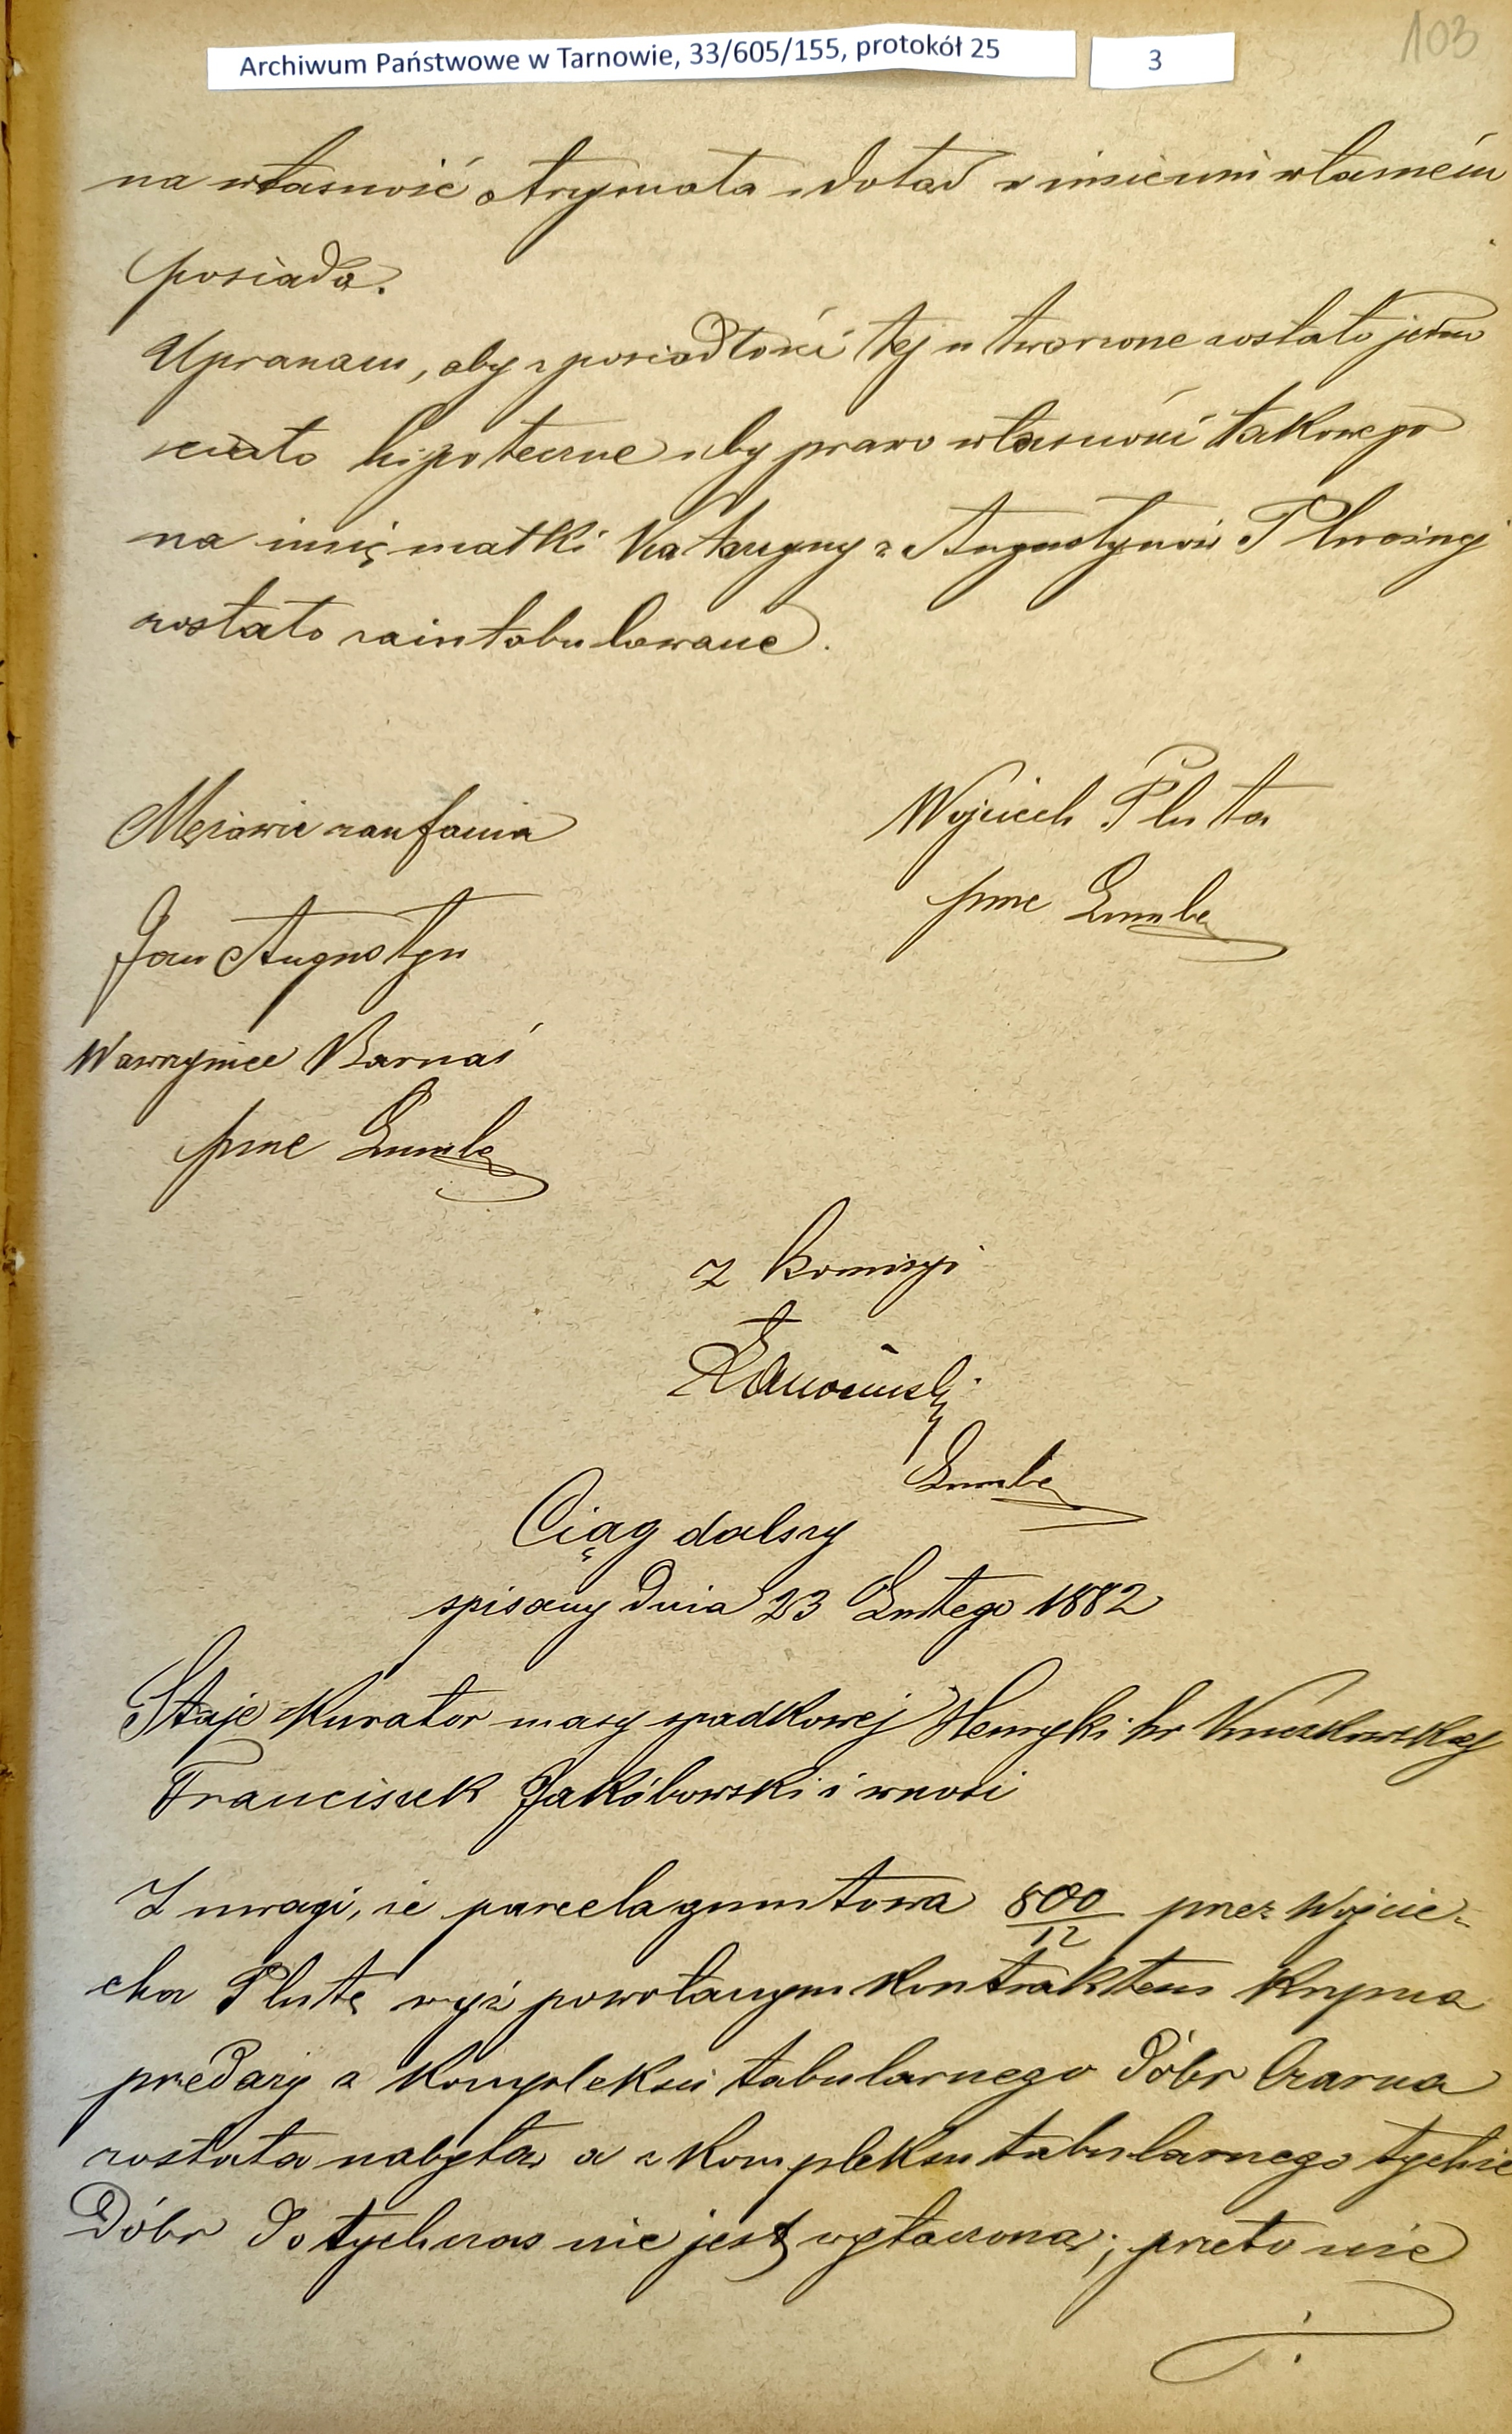 103
Archiwum Państwowe w Tarnowie, 33/605/155, protokół 25
3
na własność otrzymała i dotąd w imieniu własném
posiada.
Upraszam, aby z posiadłości tej utworzone zostało jedno
ciało hipoteczne i by prawo własności takowego
na imię matki Katarzyny z Augustynów Plucinej
zostało zaintabulowane.
Mężowie zaufania
Wojciech Pluta
Jan Augustyn
pme
Wawrzyniec Barnaś
pme
Z Komisyi
Ciąg dalszy
spisany dnia 23 Lutego 1882
Staje Kurator masy spadkowej Henryki hr
Franciszek Jakóbowski i wnosi
Z uwagi, że parcela gruntowa 800/12 przez Wojcie-
cha Plutę wyż powołanym kontraktem kupna
przedaży z kompleksu tabularnego dóbr Czarna
została nabyta, a z kompleksu tabularnego tychże
Dóbr dotychczas nie jest wyłączona; przeto nie